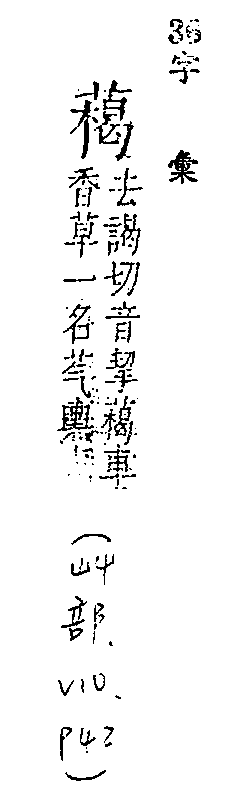 36字彙
藒
去謁切音挈藒車
香草一名芞輿
(艸部.
V10.
P42)